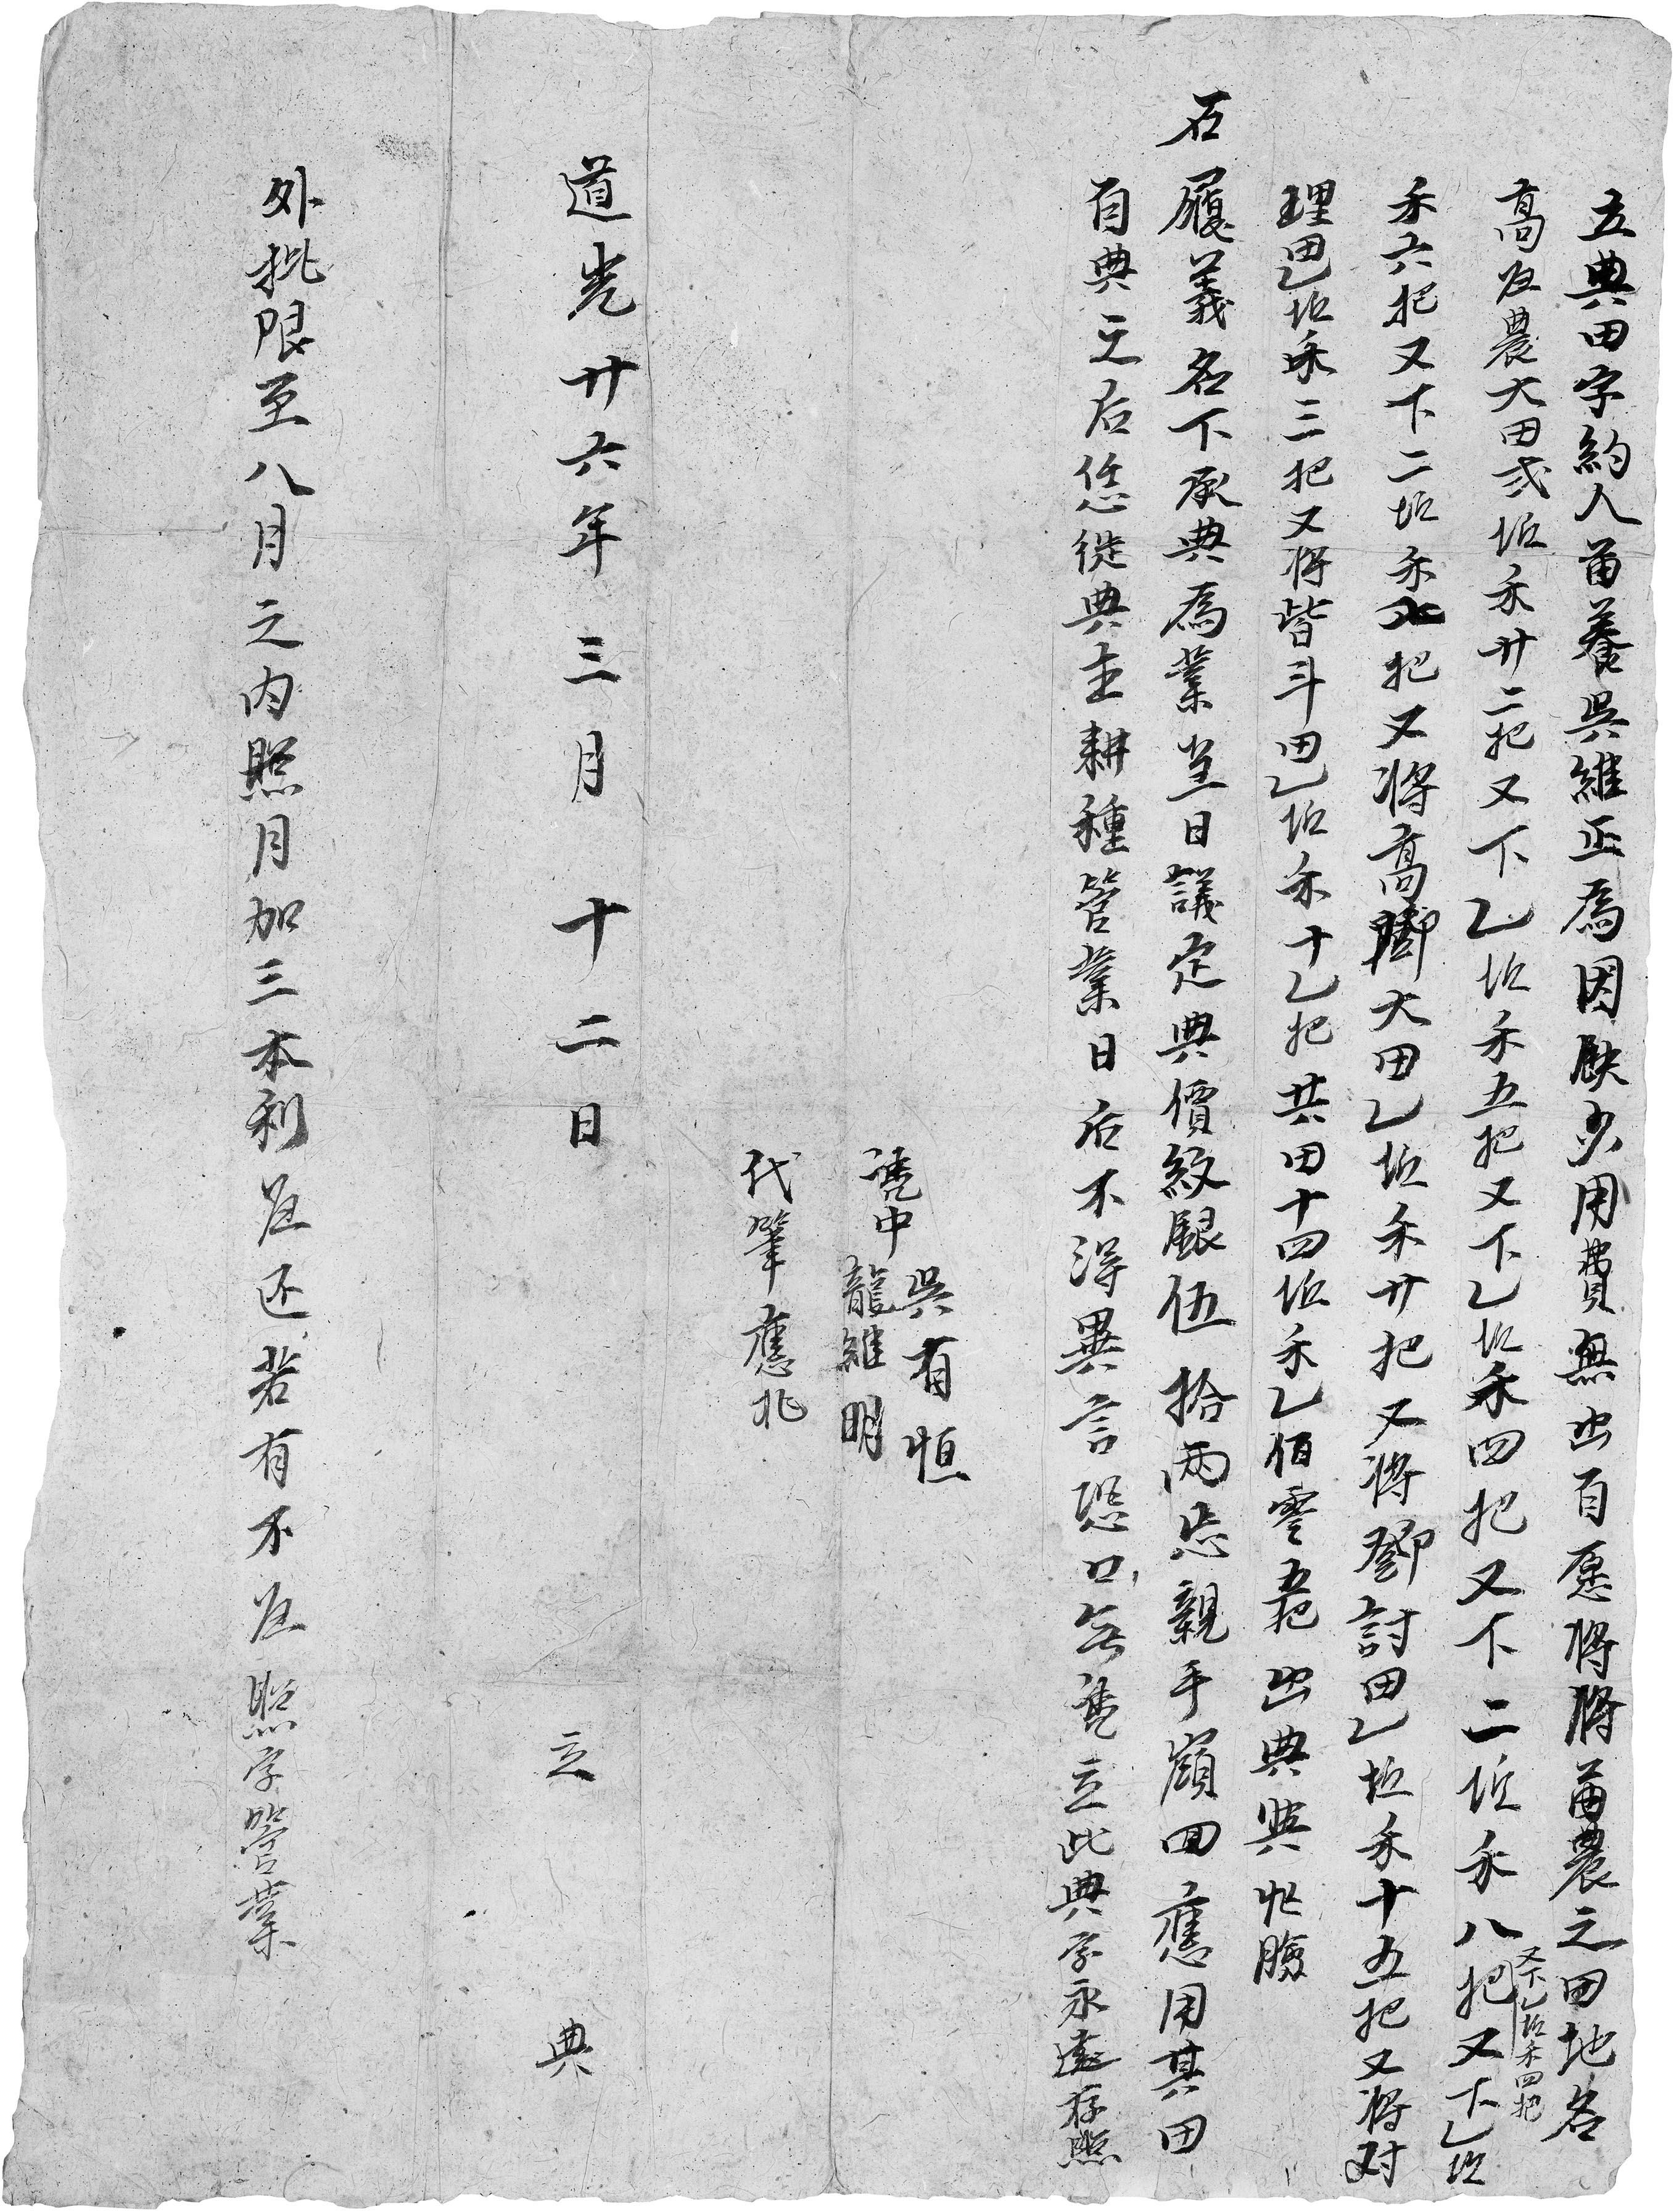 立典田字約人苗養吳維正為因缺少用費無出自愿將將苗農之田地名
高㘴農大田弍坵禾廿二把又下乙坵禾五把又下乙坵禾四把又下二坵禾八把又下乙坵
又下乙坵禾四把
禾六把又下二坵禾把又將高腳大田乙坵禾廿把又將鄧討田乙坵禾十五把又將对
理田乙坵禾三把又將皆斗田乙坵禾十乙把共田十四坵禾乙佰零五把出典與忙膽
石履義名下承典為業当日議定典價紋銀伍拾兩忝親手領回應用其田
自典之后恁從典主耕種管業日后不得異言恐口無憑立此典字永遠存照
憑中 吳有恒
龍維明
代筆應兆
道光廿六年三月十二日 立 典
外批限至八月之內照月加三本利歸还若有不歸照字管業